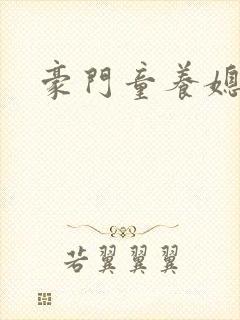 豪門童養媳
若翼翼翼